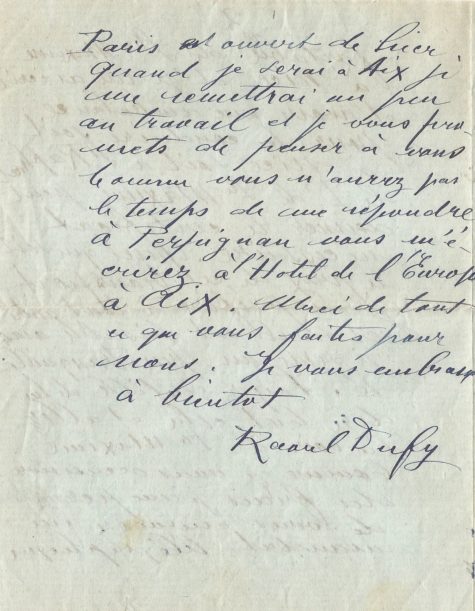 Paris est ouvert de hier
quand je serai à Aix je
me remettrai un peu
au travail et je vous pro
mets de penser à vous
Comme vous n'aurez pas
le temps de me répondre
à Perpignan vous m'é
crirez à l'Hotel de l'Europe
à Aix. Merci de tout
ce que vous faites pour
nous. Je vous embrasse
à bientot
Raoul Dufy